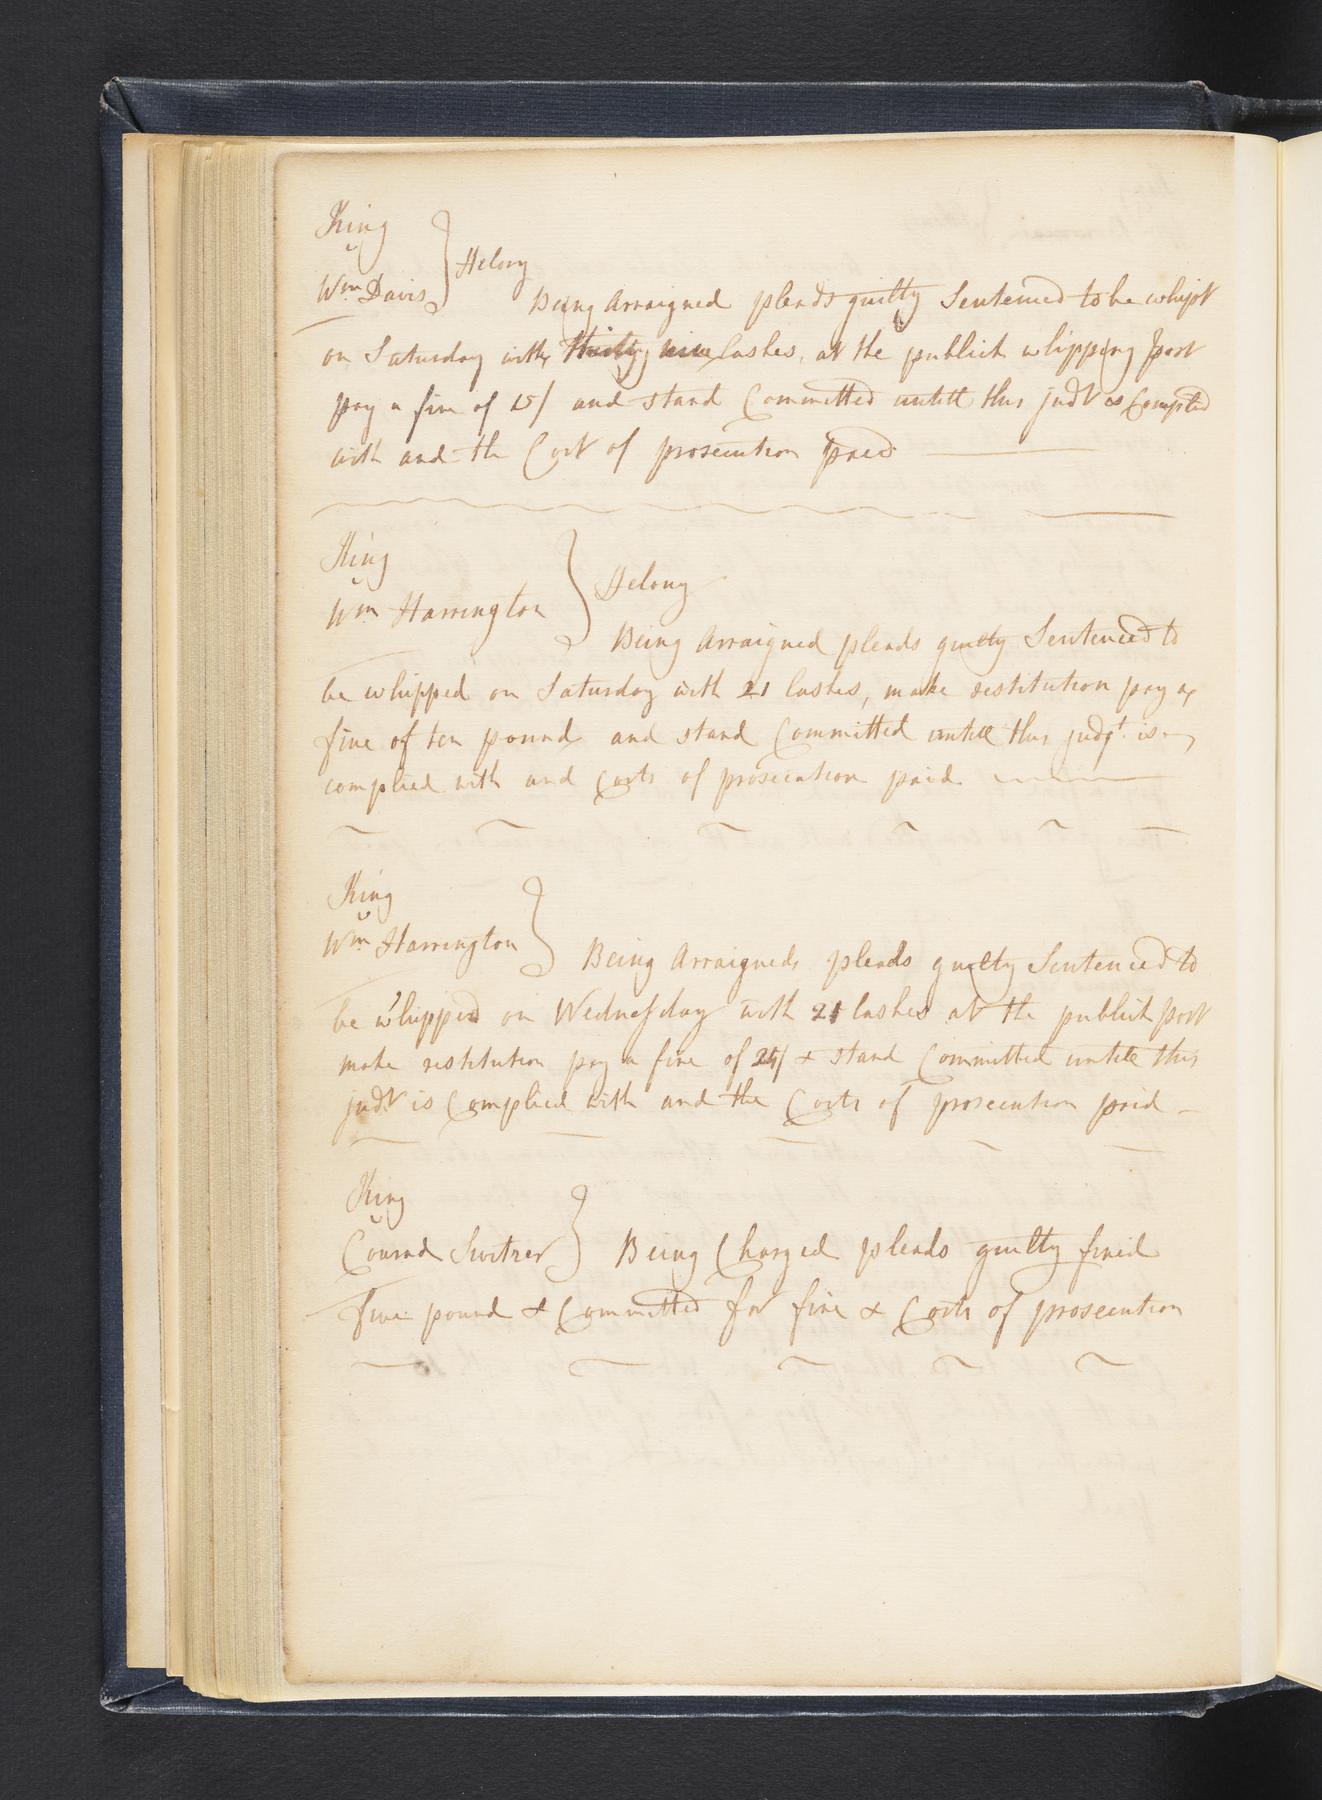 King
v
Wm Davis } Felony
Being Arraigned pleads guilty Sentenced to be whipt
on Saturday with thirty nine lashes, at the publick whipping post
pay a fine of 15/ and stand Committed untill this judt is Complied
with and the Cost of prosecution paid
King
v
Wm Harrington } Felony
Being Arraigned pleads guilty Sentenced to
be whipped on Saturday with 21 lashes, make restitution pay a
fine of ten pound and stand Committed untill this judgt. is
complied with and Costs of prosecution paid
King
v
Wm Harrington } Being Arraigned pleads guilty Sentenced to
be whipped on Wednesday with 21 lashes at the publick post
make restitution pay a fine of & stand Committed untill this
judt is Complied with and the Costs of prosecution paid
King
v
Conrad Switzer } Being Charged pleads guilty fined
five pound & Committed for fine & Costs of prosecution